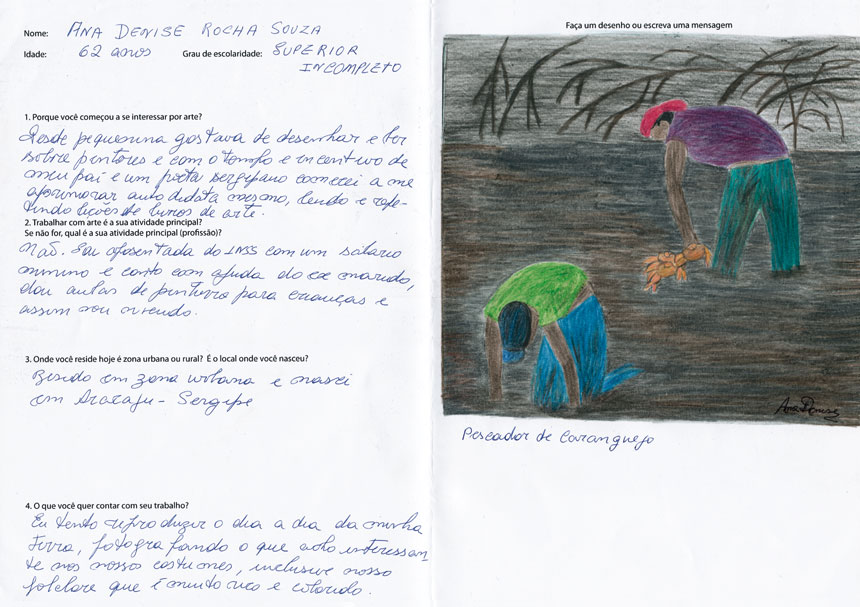 Nome: ANA DENISE ROCHA SOUZA
Idade: 62 anos Grau de escolaridade: SUPERIOR
INCOMPLETO
1. Porque você começou a se interessar por arte?
Desde pequenina gostava de desenhar e ler
sobre pintores e com o tempo e incentivo de
meu pai e um poeta sergipano comecei a me
aprimorar auto didata mesmo, lendo e repe-
tindo lições de livros de arte.
2. Trabalhar com arte é a sua atividade principal?
Se não for, qual é a sua atividade principal (profissão)?
Não. Sou aposentada do INSS com um salário
minimo e conto com ajuda do ex marido,
dou aulas de pintura para crianças e
assim vou vivendo.
3. Onde você reside hoje é zona urbana ou rural? É o local onde você nasceu?
Resido em zona urbana e nasci
em Aracaju - Sergipe
4. O que você quer contar com seu trabalho?
Eu tento reproduzir o dia a dia da minha
terra, fotografando o que acho interessan
te nos nossos costumes, inclusive nosso
folclore que é muito rico e colorido.
Faça um desenho ou escreva uma mensagem
Ana Denise
Pescador de Caranguejo